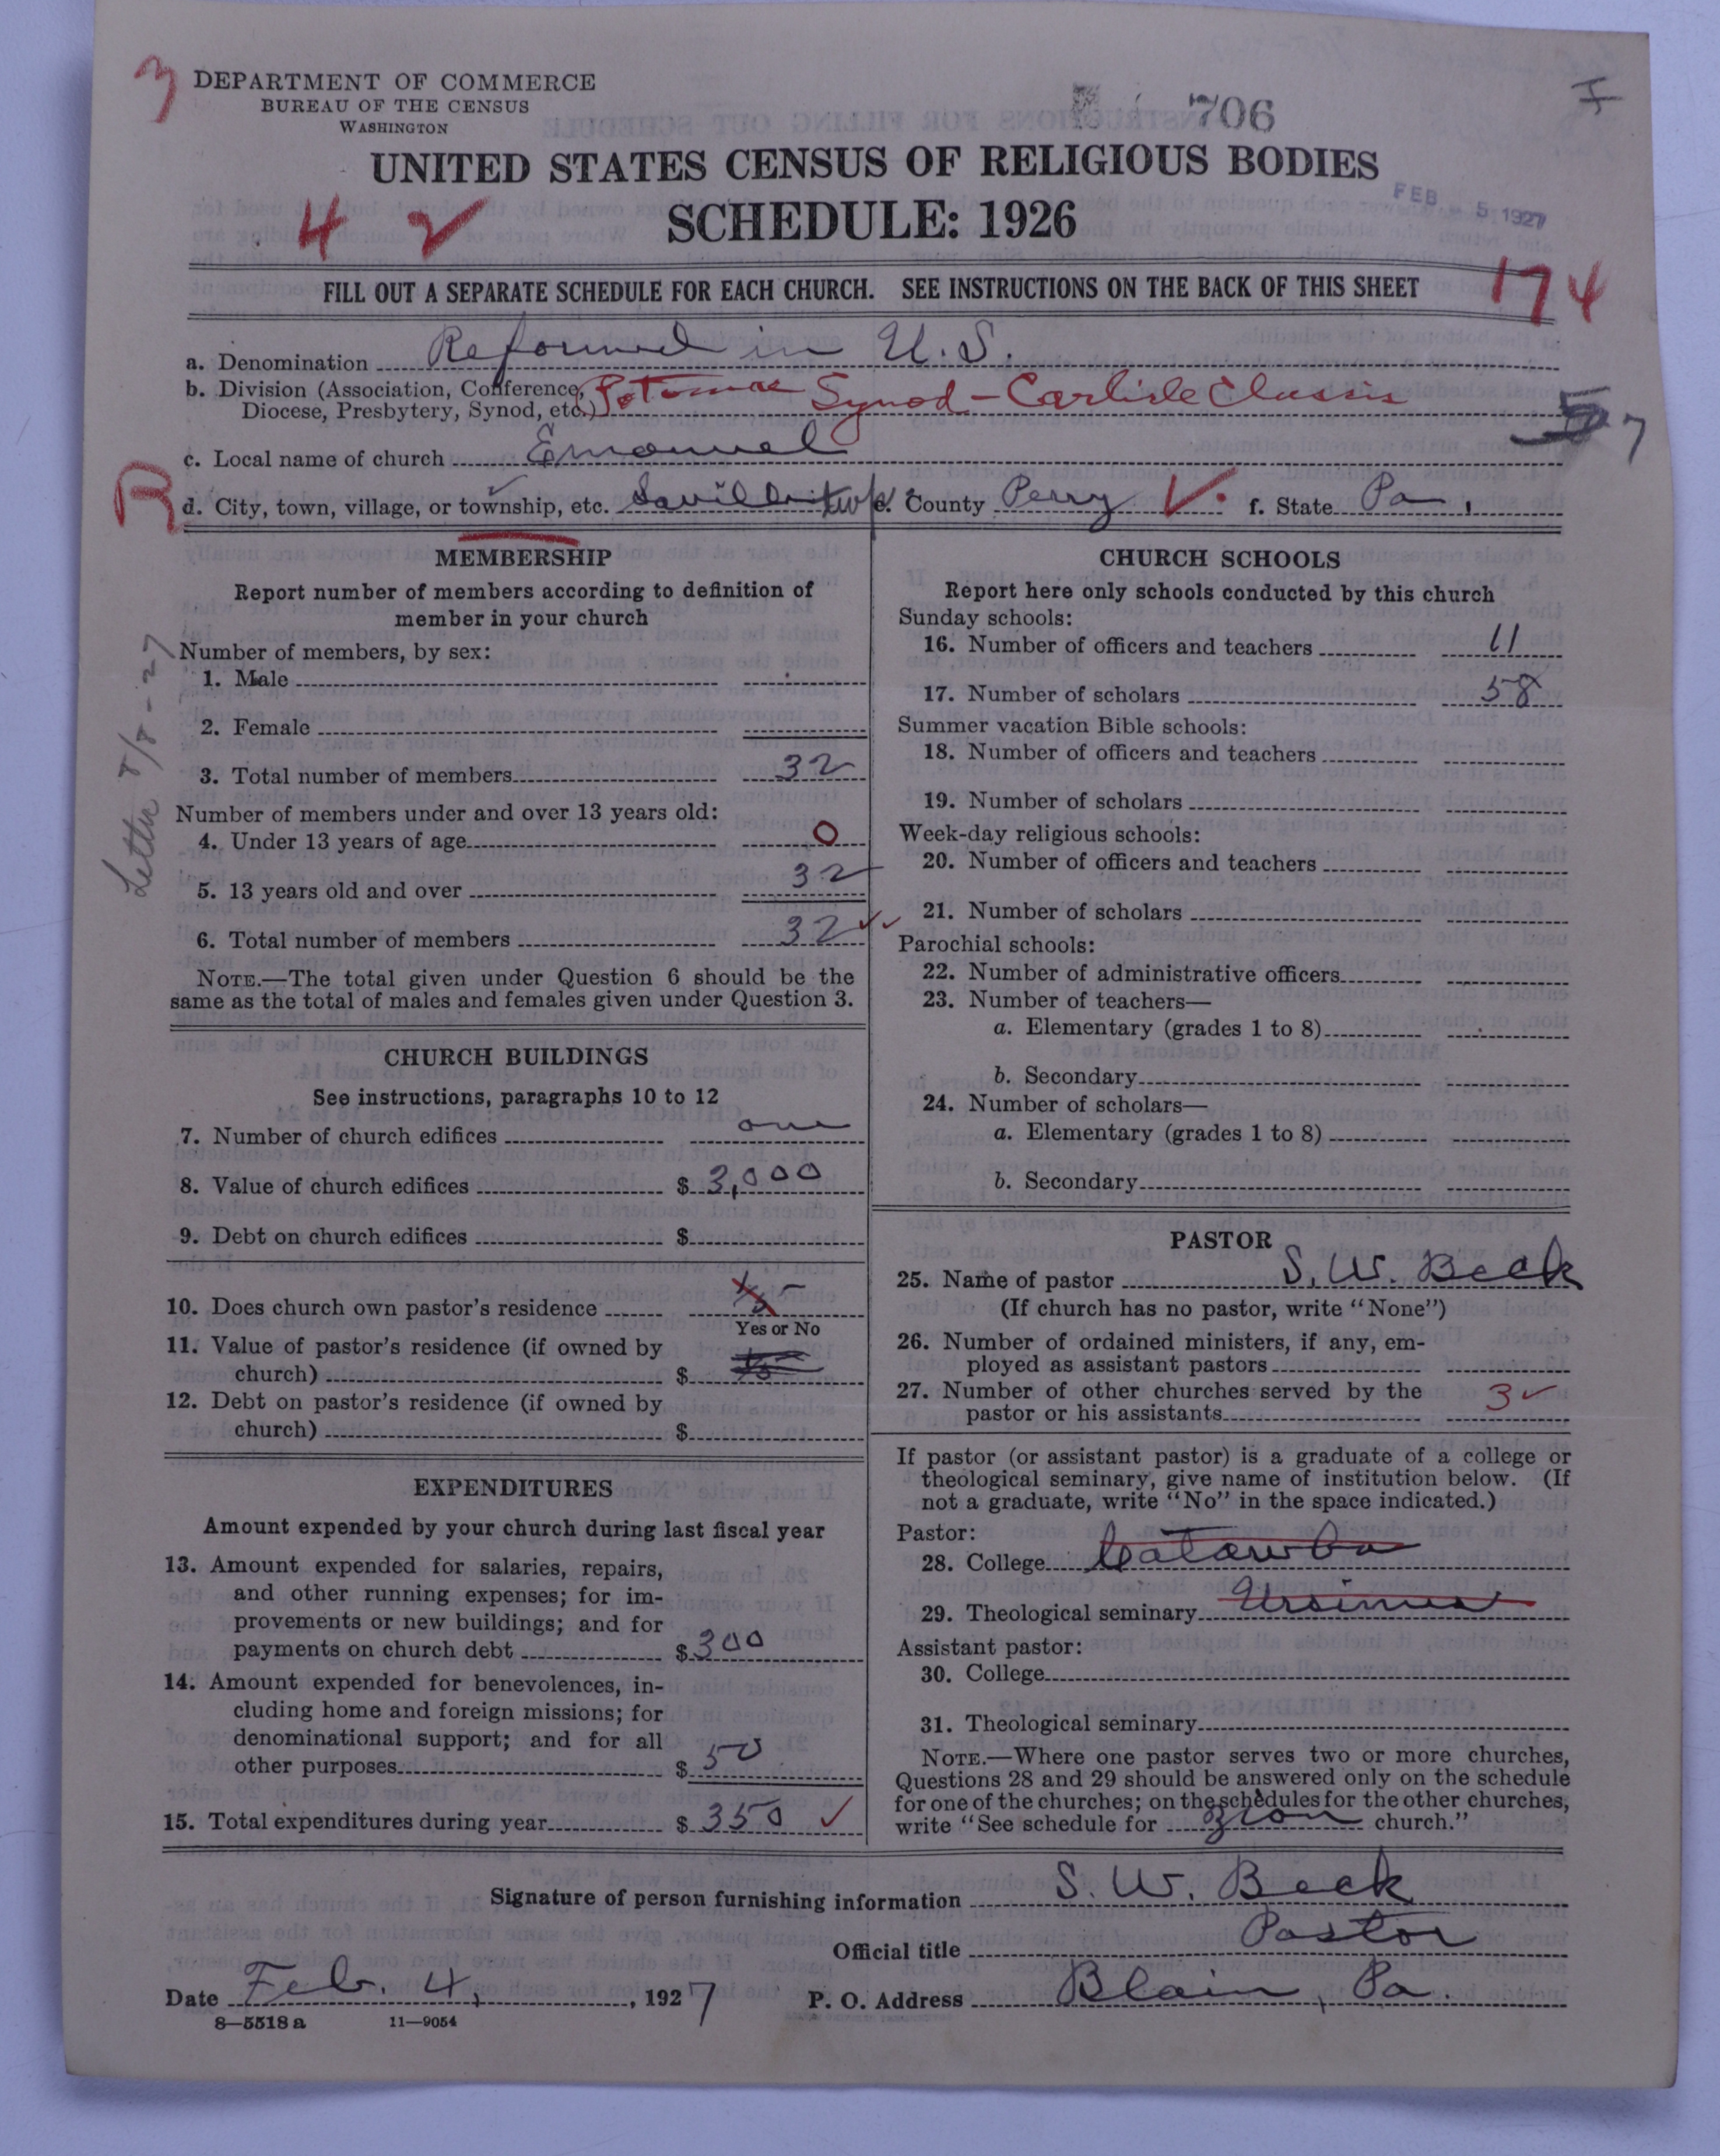 3
DEPARTMENT OF COMMERCE
BUREAU OF THE CENSUS
WASHINGTON
706
UNITED STATES CENSUS OF RELIGIOUS BODIES
FEB - 5 1927
4 2
SCHEDULE: 1926
FILL OUT A SEPARATE SCHEDULE FOR EACH CHURCH. SEE INSTRUCTIONS ON THE BACK OF THIS SHEET
174
a. Denomination Reformed in U.S.
b. Division (Association, Conference, Diocese, Presbytery, Synod, etc.) Potomac Synod - Carlisle Classis
7
c. Local name of church Emanuel
R
d. City, town, village, or township, etc. Saville twp e. County Perry f. State Pa
Letter 8/8-27
MEMBERSHIP
Report number of members according to definition of
member in your church
Number of members, by sex:
1. Male
2. Female
3. Total number of members 32
Number of members under and over 13 years old:
4. Under 13 years of age 0
5. 13 years old and over 32
6. Total number of members 32
NOTE.—The total given under Question 6 should be the
same as the total of males and females given under Question 3.
CHURCH BUILDINGS
See instructions, paragraphs 10 to 12
7. Number of church edifices one
8. Value of church edifices $ 3,000
9. Debt on church edifices $
10. Does church own pastor's residence 1/5
Yes or No
11. Value of pastor's residence (if owned by
church) $
12. Debt on pastor's residence (if owned by
church) $
EXPENDITURES
Amount expended by your church during last fiscal year
13. Amount expended for salaries, repairs,
and other running expenses; for im-
provements or new buildings; and for
payments on church debt $ 300
14. Amount expended for benevolences, in-
cluding home and foreign missions; for
denominational support; and for all
other purposes $ 50
15. Total expenditures during year $ 350
CHURCH SCHOOLS
Report here only schools conducted by this church
Sunday schools:
16. Number of officers and teachers 11
17. Number of scholars 58
Summer vacation Bible schools:
18. Number of officers and teachers
19. Number of scholars
Week-day religious schools:
20. Number of officers and teachers
21. Number of scholars
Parochial schools:
22. Number of administrative officers
23. Number of teachers—
a. Elementary (grades 1 to 8)
b. Secondary
24. Number of scholars—
a. Elementary (grades 1 to 8)
b. Secondary
PASTOR
25. Name of pastor S. W. Beck
(If church has no pastor, write "None")
26. Number of ordained ministers, if any, em-
ployed as assistant pastors
27. Number of other churches served by the
pastor or his assistants 3
If pastor (or assistant pastor) is a graduate of a college or
theological seminary, give name of institution below. (If
not a graduate, write "No" in the space indicated.)
Pastor:
28. College Catawba
29. Theological seminary Ursinus
Assistant pastor:
30. College
31. Theological seminary
NOTE.—Where one pastor serves two or more churches,
Questions 28 and 29 should be answered only on the schedule
for one of the churches; on the schedules for the other churches,
write "See schedule for Zion church."
Signature of person furnishing information S. W. Beck
Official title Pastor
Date Feb. 4, 1927 P. O. Address Blain, Pa.
8—5518 a 11—9054